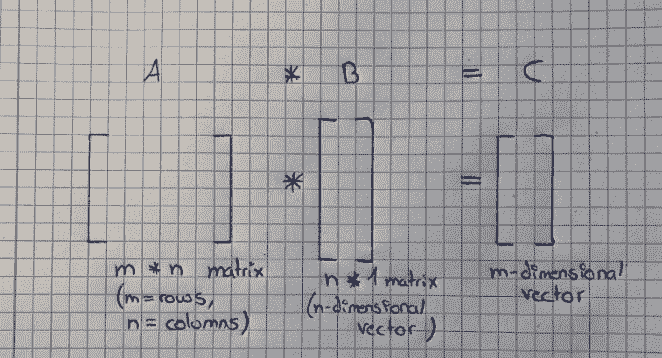 A * B = C
* =
m * n matrix
(m = rows,
n = colomns)
n * 1 matrix
(n-dimensional
vector)
m-dimensional
vector